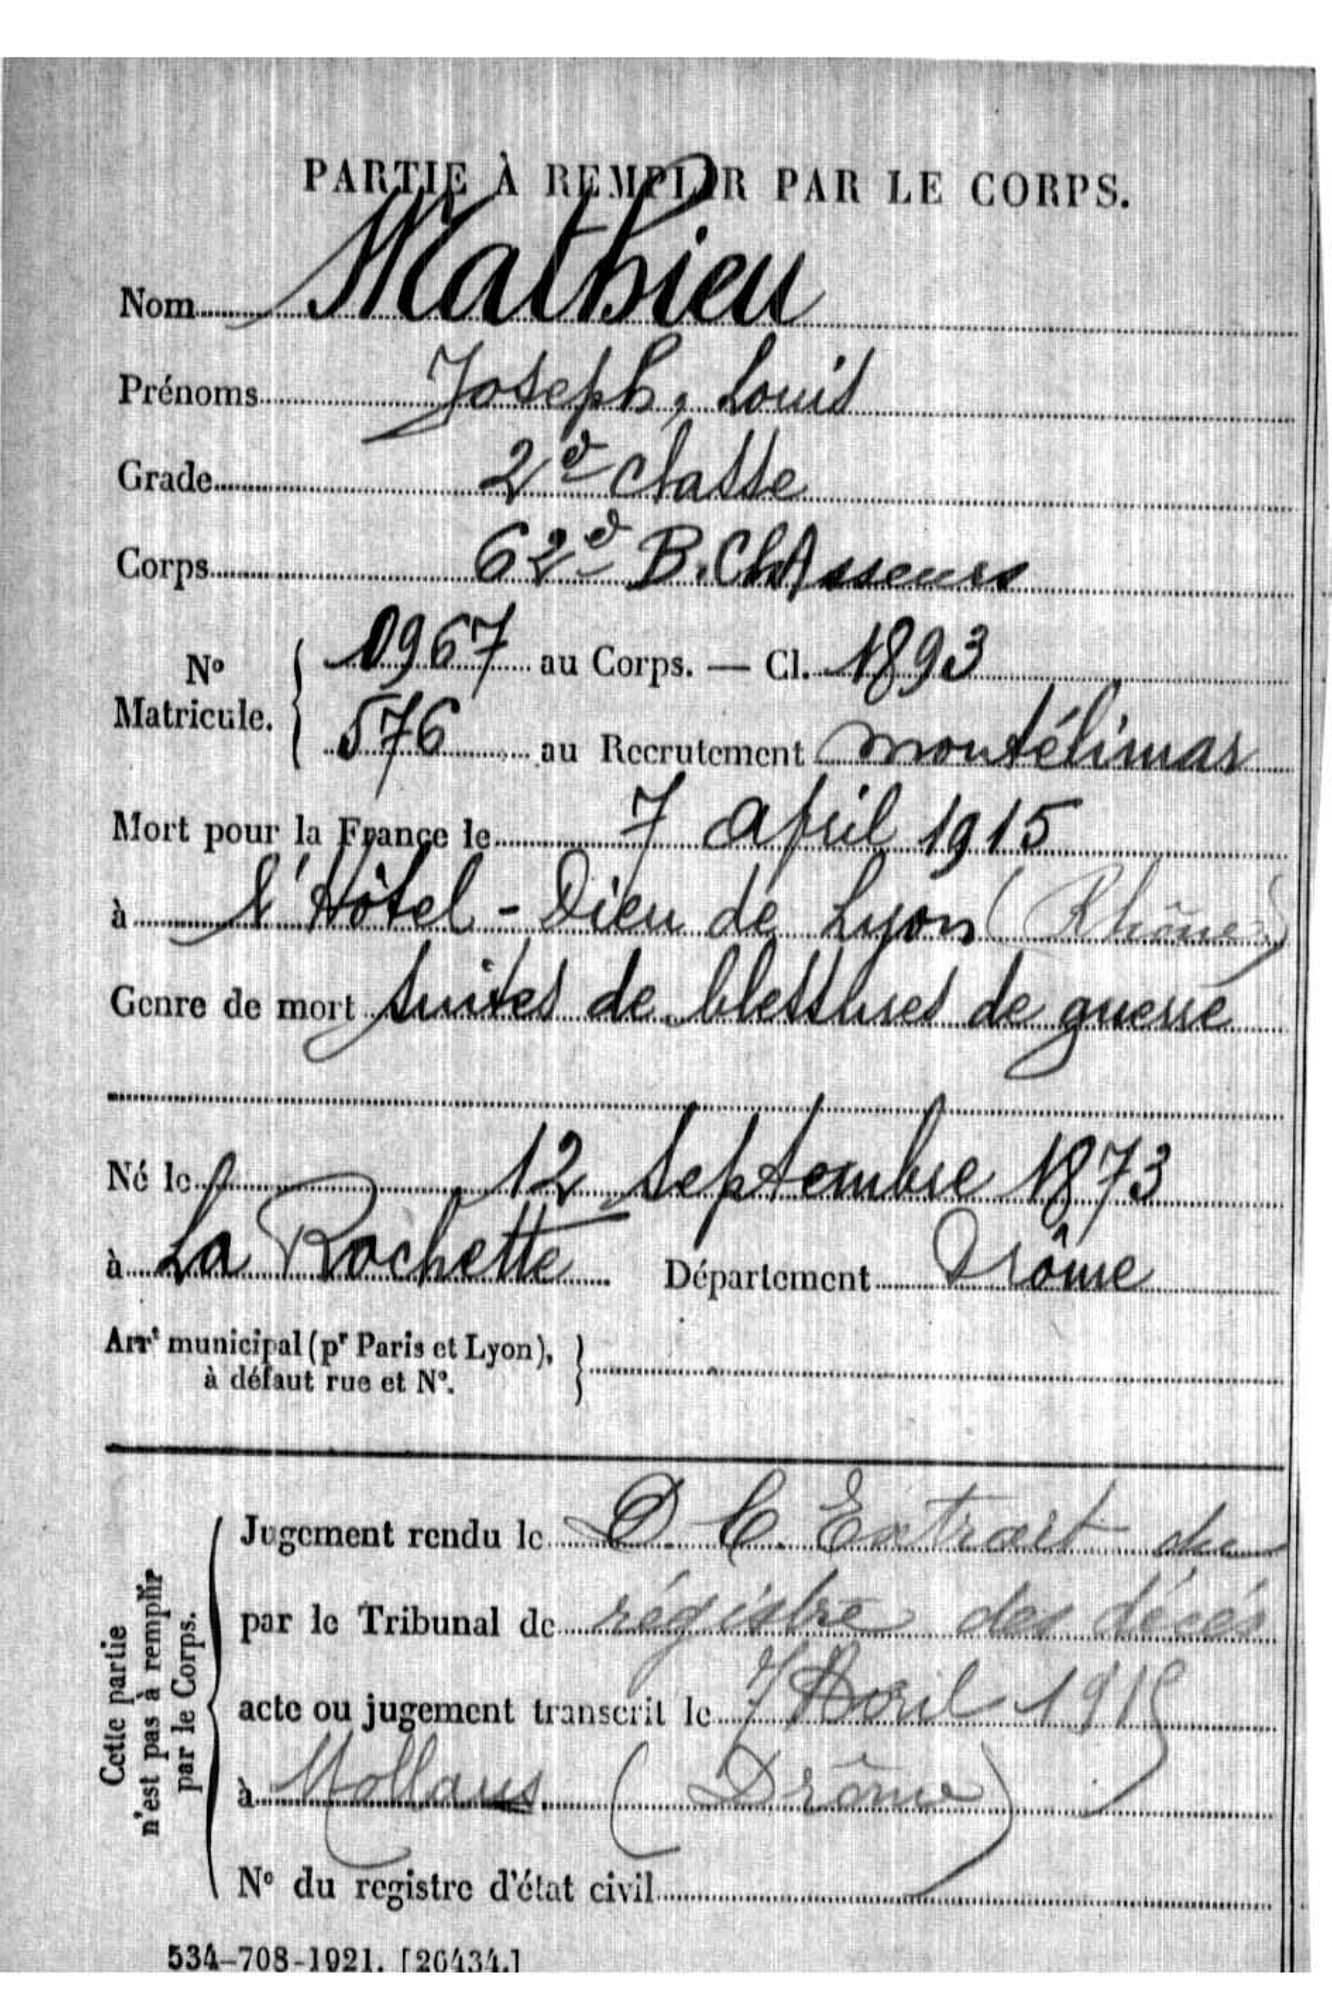 PARTIE À REMPLIR PAR LE CORPS.
Nom Mathieu
Prénoms Joseph, Louis
Grade 2e classe
Corps 62e B. Chasseurs
No Matricule. { 0967 au Corps. — Cl. 1893
576 au Recrutement Montélimar
Mort pour la France le 7 April 1915
à l'Hôtel-Dieu de Lyon (Rhône)
Genre de mort suites de blessures de guerre
Né le 12 Septembre 1873
à La Rochette Département Drôme
Arrt municipal (pr Paris et Lyon), }
à défaut rue et No.
Cette partie
n'est pas à remplir
par le Corps.
Jugement rendu le D. C. Extrait du
par le Tribunal de régistre des décés
acte ou jugement transcrit le 7 Avril 1915
à Mollans (Drôme)
No du registre d'état civil
534-708-1921. [26434.]